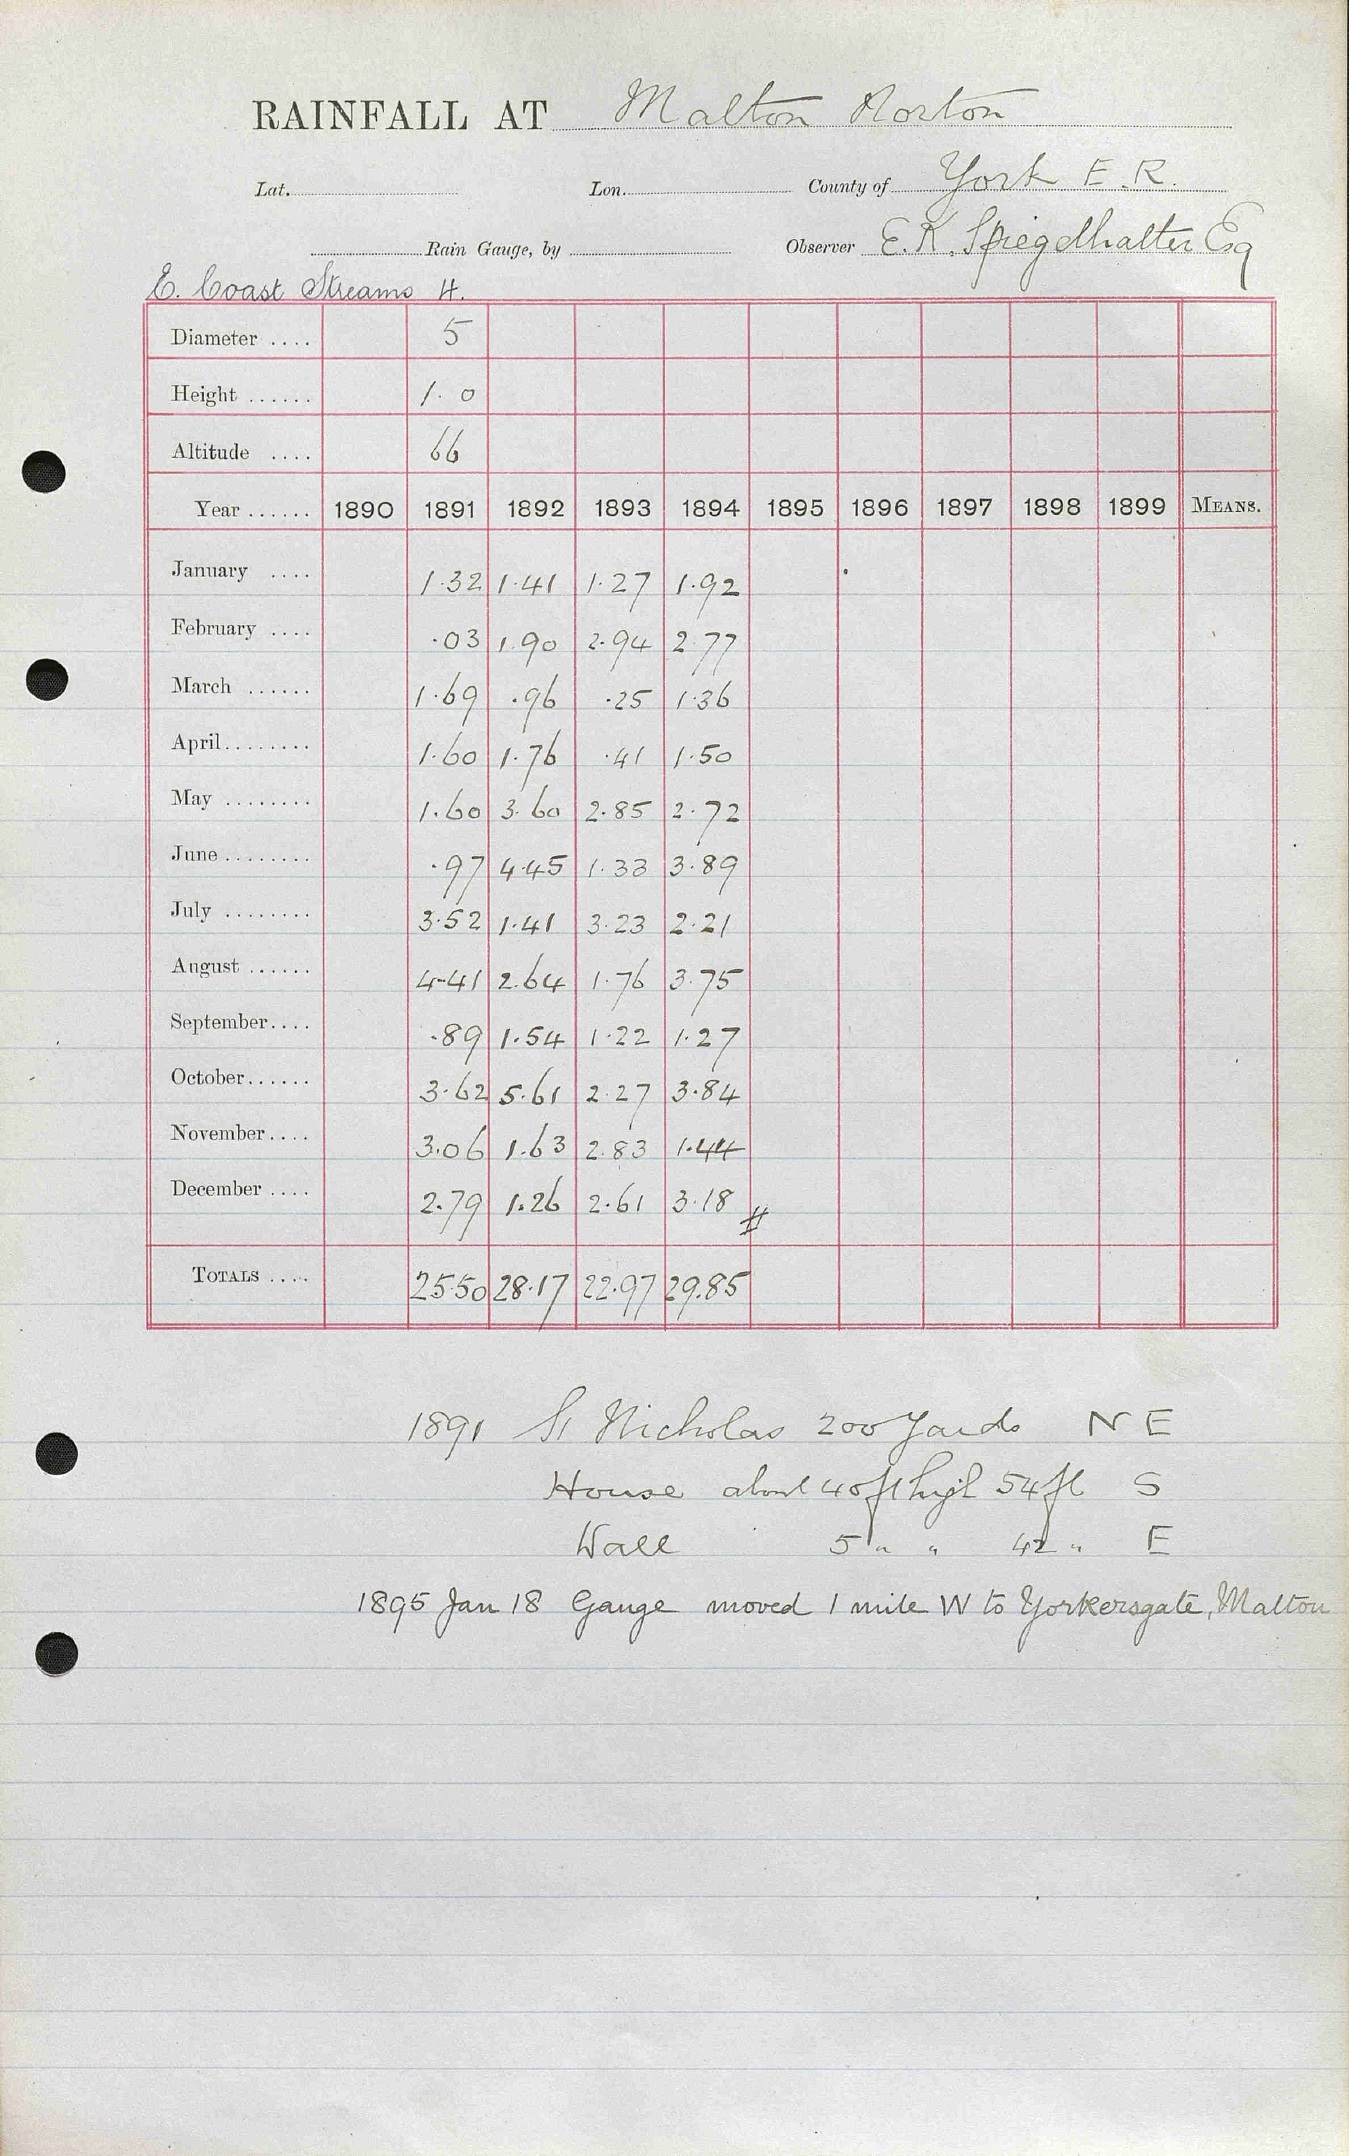 RAINFALL AT Malton Norton
Lat. Lon. County of York E.R.
Rain Gauge, by Observer E. K. Spiegelhalter Esq
E. Coast Streams 4.
Diameter .... 5
Height ...... 1. 0
Altitude .... 66
Year ...... 1890 1891 1892 1893 1894 1895 1896 1897 1898 1899 MEANS.
January .... 1.32 1.41 1.27 1.92
February .... .03 1.90 2.94 2.77
March ...... 1.69 .96 .25 1.36
April........ 1.60 1.76 .41 1.50
May ........ 1.60 3.60 2.85 2.72
June ........ .97 4.45 1.33 3.89
July ........ 3.52 1.41 3.23 2.21
August ...... 4.41 2.64 1.76 3.75
September.... .89 1.54 1.22 1.27
October...... 3.62 5.61 2.27 3.84
November.... 3.06 1.63 2.83 1.44
December .... 2.79 1.26 2.61 3.18 #
TOTALS .... 25.50 28.17 22.97 29.85
1891 St Nicholas 200 Yards N E
House about 40 ft high 54 ft S
Wall 5 " " 42 " E
1895 Jan 18 Gauge moved 1 mile W to Yorkersgate, Malton